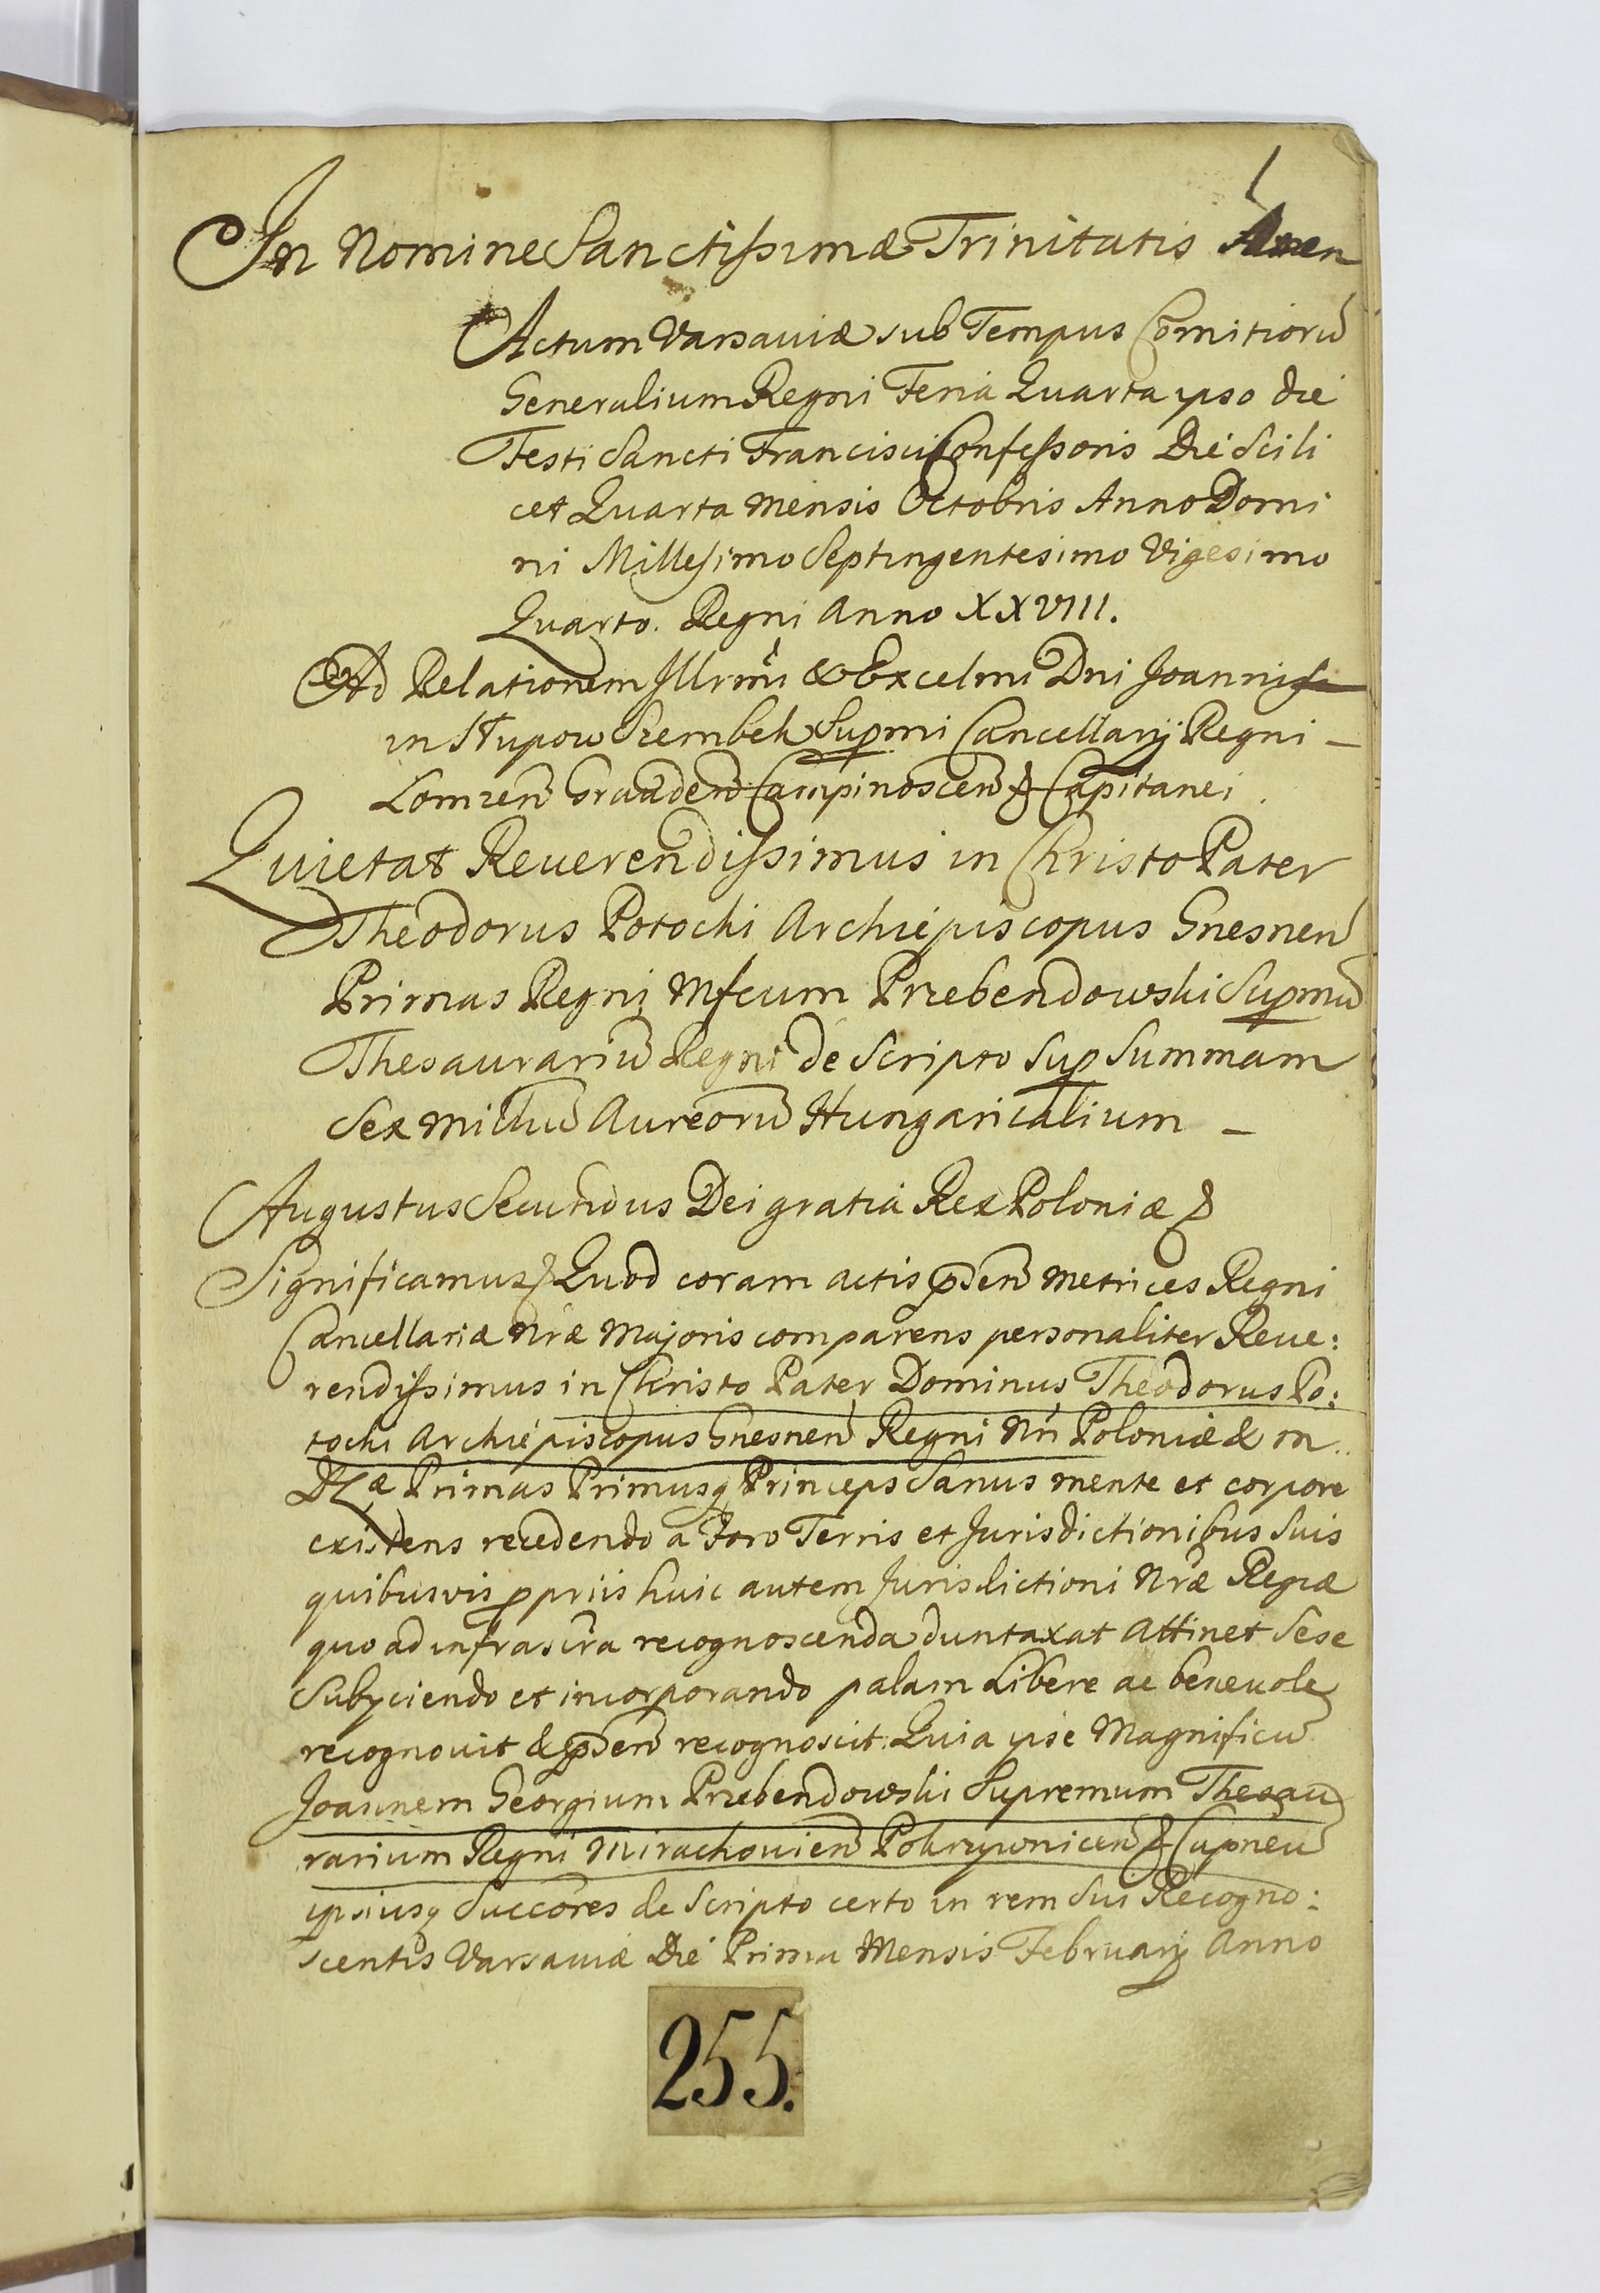 1
In Nomine Sanctissimæ Trinitatis Amen
Actum Varsaviæ sub Tempus Comitiorũ
Generalium Regni Feria Quarta ipso die
Festi Sancti Francisci Confessoris Die Scili
cet Quarta mensis Octobris Anno Domi
ni Millesimo Septingentesimo Vigesimo
Quarto. Regni Anno XXVIII.
Ad Relationem Illrmi & Excelmi Dni Joannis
in Słupow Szembek Supmi Cancellarij Regni –
Lomzeñ Graudeñ Campinosceñ & Capitanei
Quietat Reuerendissimus in Christo Pater
Theodorus Potocki Archiepiscopus Gnesneñ
Primas Regni Mfcum Przebendowski Supmũ
Thesaurariũ Regni de Scripto sup Summam
Sex Millium Aureorũ Hungaricalium –
Augustus Secundus Dei gratia Rex Poloniæ &
Significamus & Quod coram actis pñseñ Metrices Regni
Cancellariæ Nræ Majoris comparens personaliter Reue:
rendissimus in Christo Pater Dominus Theodorus Po:
tocki Archiepiscopus Gnesneñ Regni Nri Poloniæ & M.
D. L. æ Primas Primusq Princeps Sanus mente et corpore
existens recedendo a Foro Terris et Jurisdictionibus Suis
quibusvis ppriis huic autem Jurisdictioni Nræ Regiæ
quo ad infrascra recognoscenda duntaxat attinet Sese
Subyciendo et incorporando palam Libere ac beneuole
recognouit & pñseñ recognoscit. Quia ipse Magnificũ
Joannem Georgium Przebendowski Supremum Thesau
rarium Regni Mirachouieñ Pokrzywniceñ & Capneũ
ipsiusq Succores de Scripto certo in rem Sui Recogno:
scentis Varsaviæ Die Prima Mensis Februarij Anno
255.